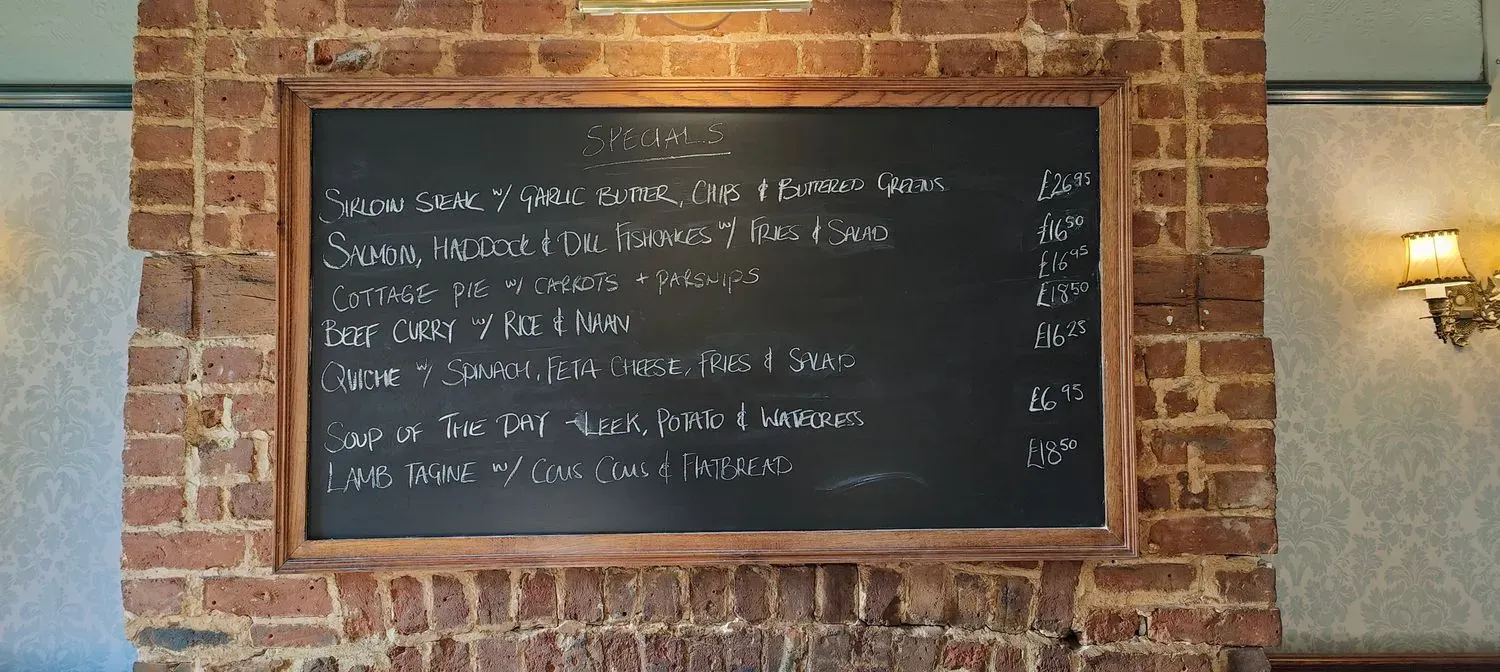 SPECIALS
SIRLOIN STEAK W/ GARLIC BUTTER, CHIPS & BUTTERED GREENS £26.95
SALMON, HADDOCK & DILL FISHCAKES W/ FRIES & SALAD £16.50
COTTAGE PIE W/ CARROTS + PARSNIPS £16.95
BEEF CURRY W/ RICE & NAAN £18.50
QUICHE W/ SPINACH, FETA CHEESE, FRIES & SALAD £16.25
SOUP OF THE DAY - LEEK, POTATO & WATECRESS £6.95
LAMB TAGINE W/ COUS COUS & FLATBREAD £18.50